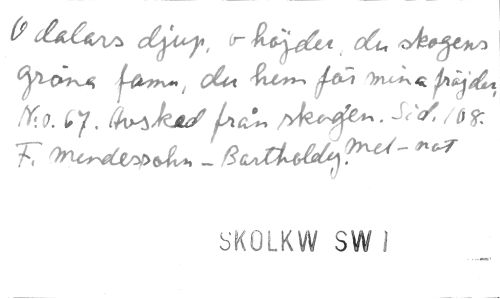 O dalars djup, o höjder, du skogens
gröna famn, du hem för mina fröjder,
N:o. 67. Avsked från skogen. Sid. 108.
F. Mendessohn - Bartholdy. Mel-not
SKOLKW SW I